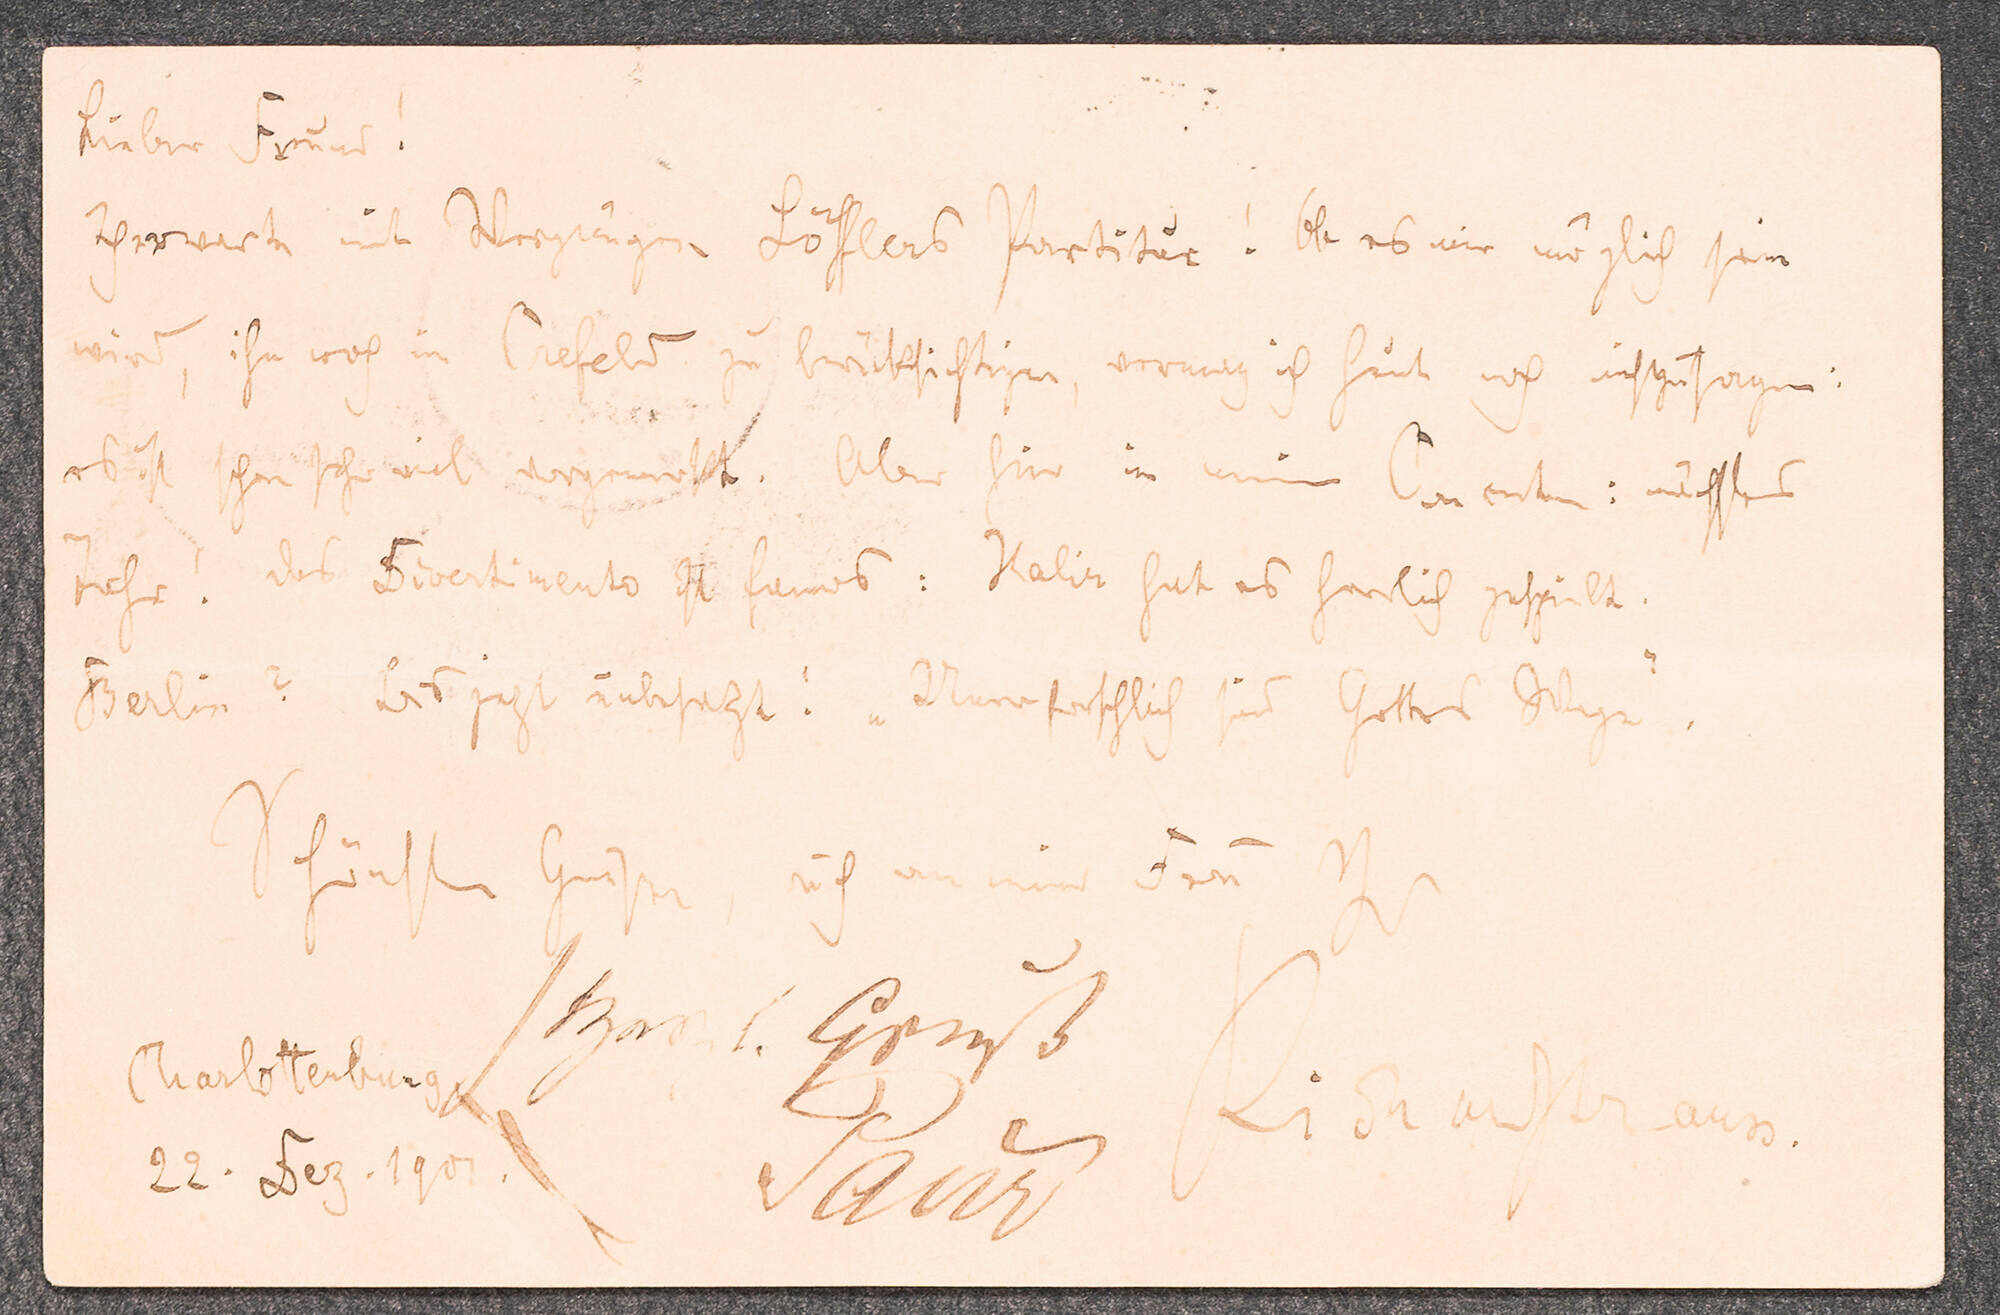 Lieber Freund!
Ich erwarte mit Vergnügen Löfflers Partitur! Ob es mir möglich sein
wird, ihn noch in Crefeld zu berücksichtigen, vermag ich heut noch nicht zu sagen:
es ist schon sehr viel vorgemerkt. Aber hier in meinen Concerten: nächstes
Jahr! das Divertimento ist famos: Halir hat es herrlich gespielt.
Berlin? bis jetzt unbesetzt! „Unerforschlich sind Gottes Wege“.
Schönsten Grüßen, auch an meine Frau Ihr
Gruß
Richard Strauss.
Charlottenburg
22. Dez. 1901.